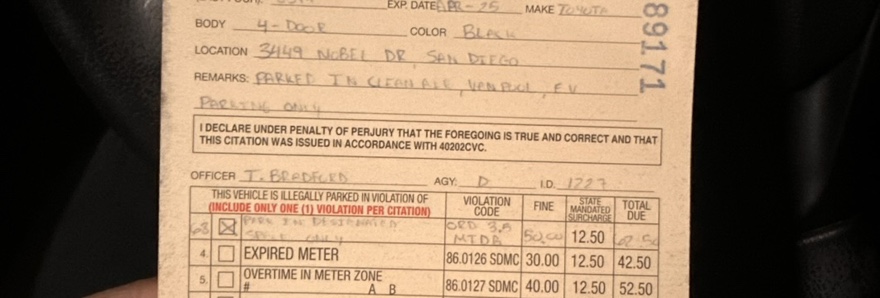 EXP. DATE APR-25 MAKE TOYOTA
BODY 4-DOOR COLOR BLACK
LOCATION 3449 NOBEL DR, SAN DIEGO
REMARKS: PARKED IN CLEAN AIR, VANPOOL, EV
PARKING ONLY
89171
I DECLARE UNDER PENALTY OF PERJURY THAT THE FOREGOING IS TRUE AND CORRECT AND THAT
THIS CITATION WAS ISSUED IN ACCORDANCE WITH 40202CVC.
OFFICER T. BRADFORD AGY: D I.D. 1727
THIS VEHICLE IS ILLEGALLY PARKED IN VIOLATION OF
(INCLUDE ONLY ONE (1) VIOLATION PER CITATION)
VIOLATION
CODE
FINE
STATE
MANDATED
SURCHARGE
TOTAL
DUE
63 PARK IN DESIGNATED
SPACE ONLY
ORD 3.5
MTDB
50.00 12.50 62.50
4. EXPIRED METER 86.0126 SDMC 30.00 12.50 42.50
5. OVERTIME IN METER ZONE
# A B 86.0127 SDMC 40.00 12.50 52.50